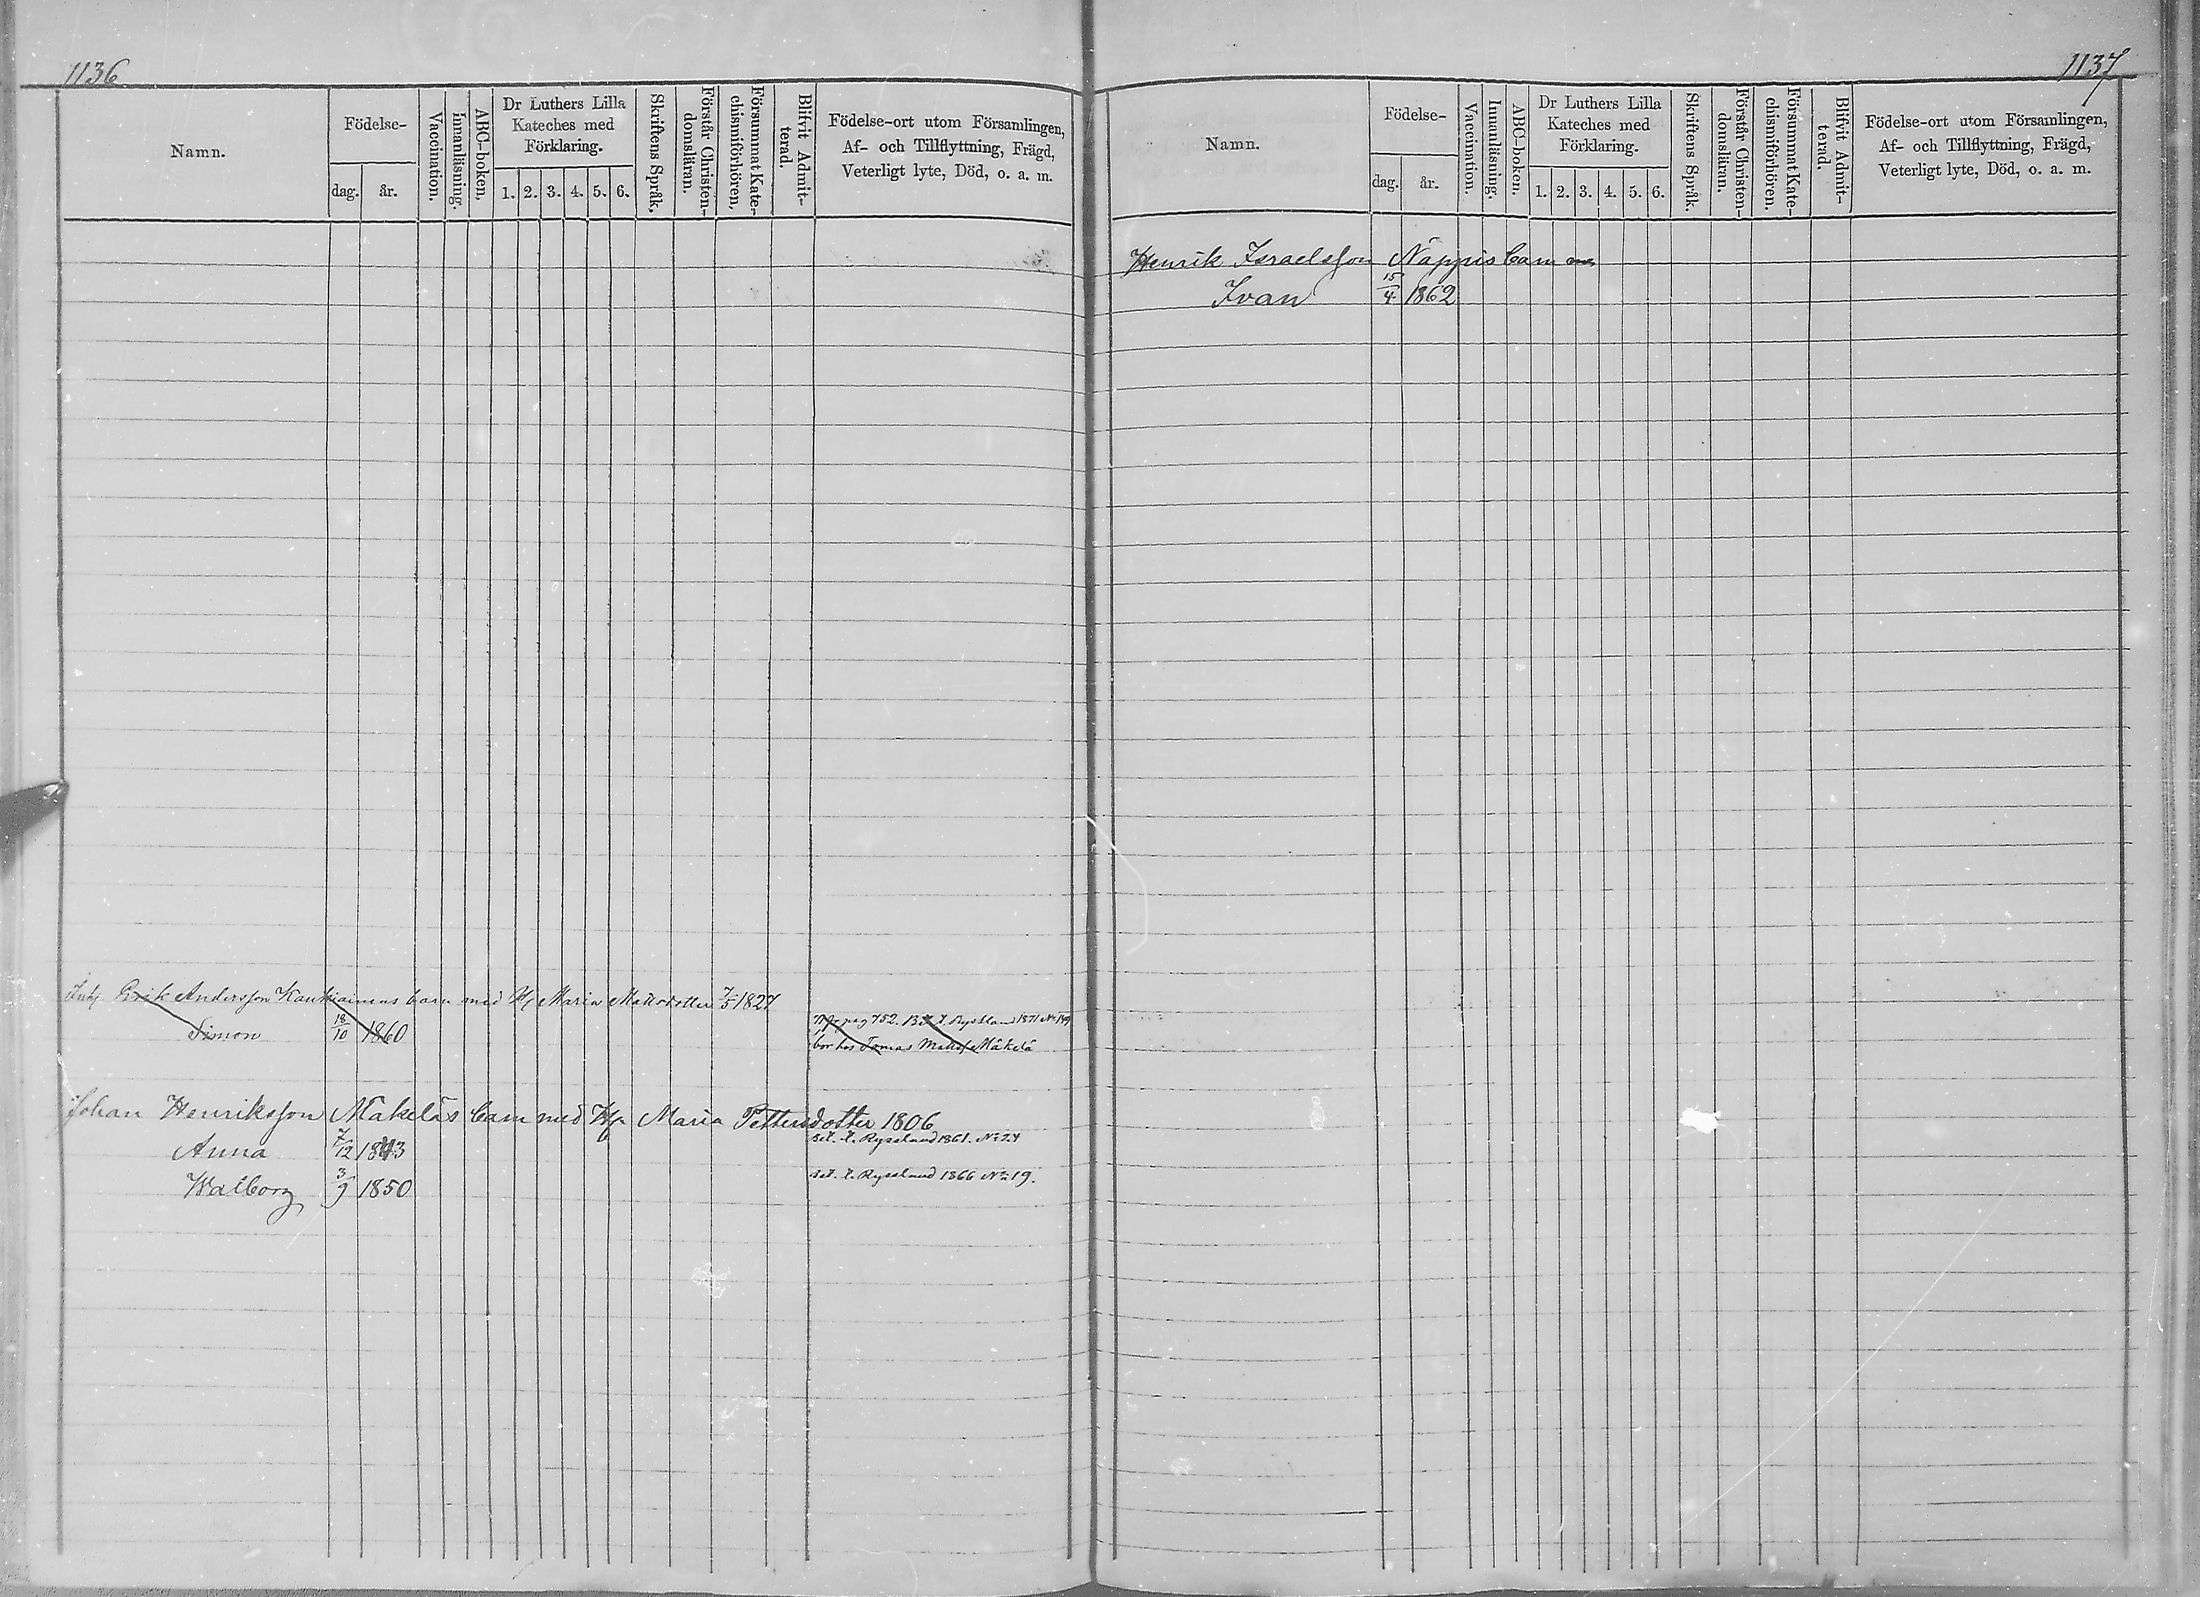 1136
Namn.
Födelse-
dag.
år.
Vaccination.
Innanläsning.
ABC-boken.
Dr Luthers Lilla
Kateches med
Förklaring.
1. 2. 3. 4. 5. 6.
Skriftens Språk.
Förstår Christen-
domsläran.
Försummat Kate-
chismiförhören.
Blifvit Admit-
terad.
Födelse-ort utom Församlingen,
Af- och Tillflyttning, Frägd,
Veterligt lyte, Död, o. a. m.
Erik Andersson barn med Maria Mattsdotter 7/5 1827
Simon 18/10 1860
pag 752. Bet. t. Ryssland 1871 No
bor hos Tomas Matts. Mäkelä
Johan Henriksson Mäkeläs barn med Hu Maria Pettersdotter 1806
Anna 7/12 1843 Bet. t. Ryssland 1861. No 24
Walborg 3/9 1850 Bet. t. Ryssland 1866 No 19.
1137
Namn.
Födelse-
dag.
år.
Vaccination.
Innanläsning.
ABC-boken.
Dr Luthers Lilla
Kateches med
Förklaring.
1. 2. 3. 4. 5. 6.
Skriftens Språk.
Förstår Christen-
domsläran.
Försummat Kate-
chismiförhören.
Blifvit Admit-
terad.
Födelse-ort utom Församlingen,
Af- och Tillflyttning, Frägd,
Veterligt lyte, Död, o. a. m.
Henrik Israelsson Näppis barn
Ivan 15/4 1862